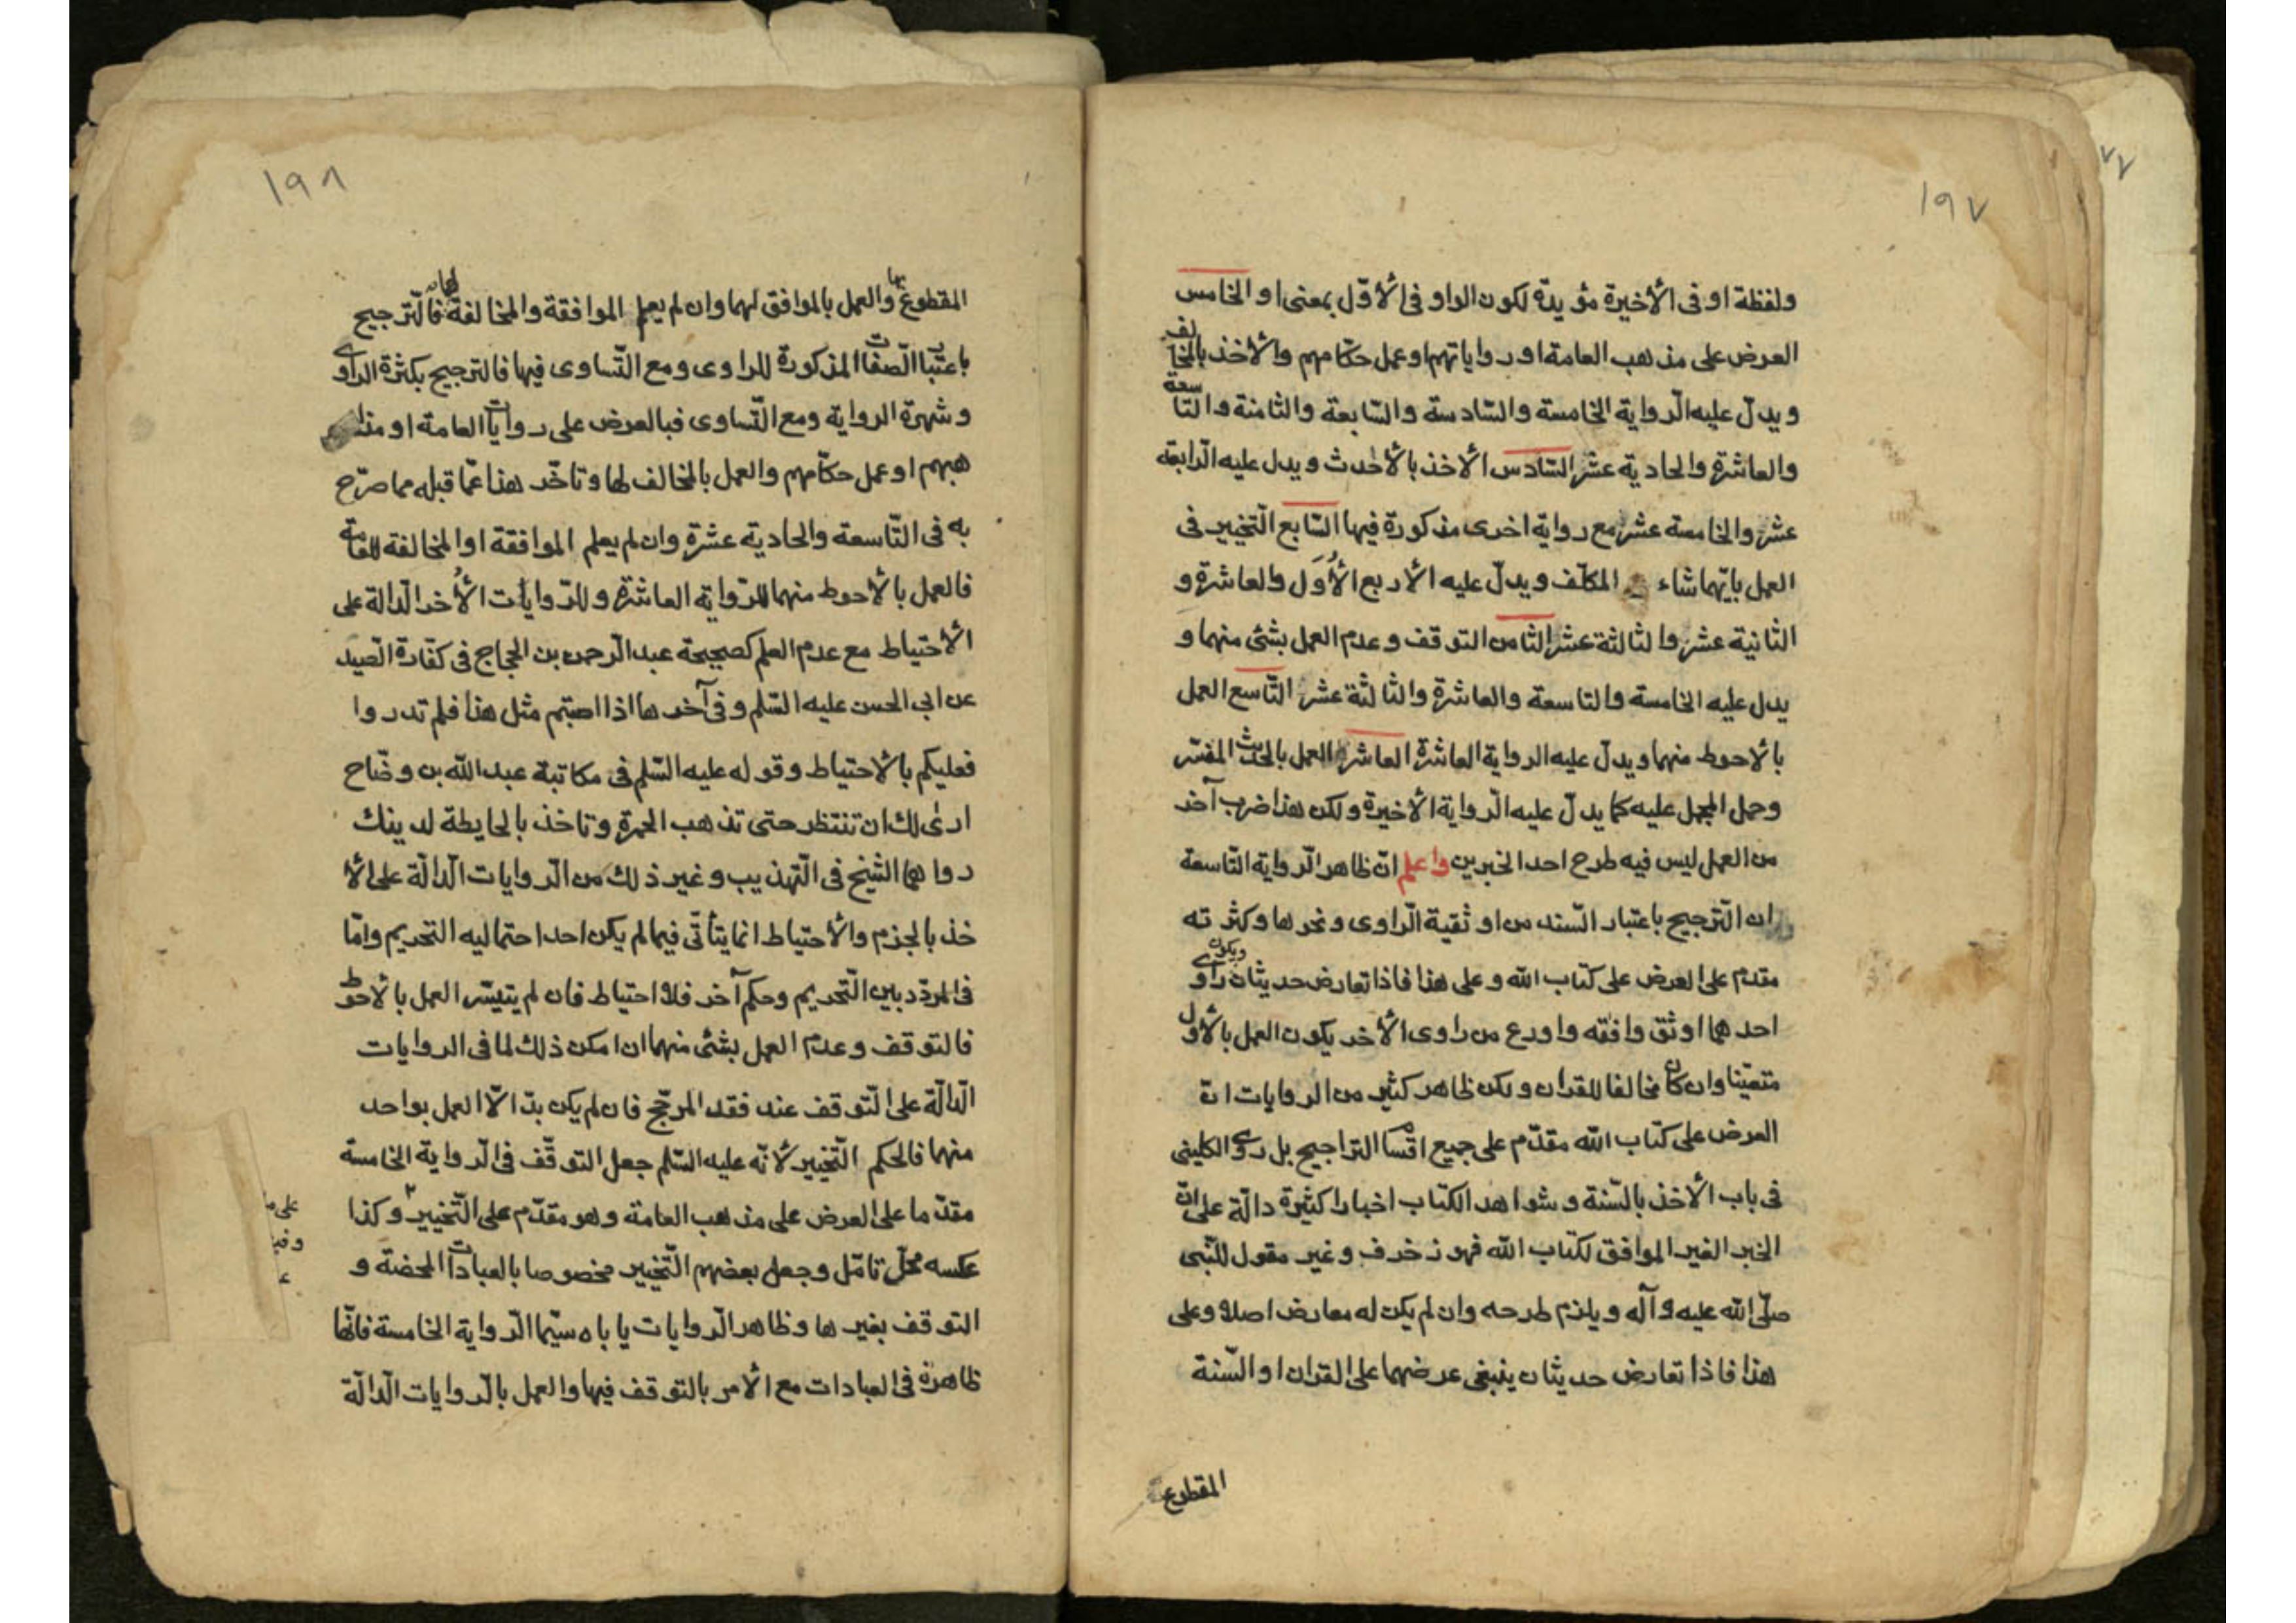 ١٩٧
ولفظة او فى الأخيرة مؤيدة لكون الواو فى الأوّل بمعنى او الخامس
العرض على مذهب العامة او رواياتهم او عمل حكّامهم والأخذ بالمخالف
ويدلّ عليه الرّواية الخامسة والسّادسة والسّابعة والثامنة والتّاسعة
والعاشرة والحادية عشر السّادس الأخذ بالأحدث ويدل عليه الرّابعة
عشر والخامسة عشر مع رواية اخرى مذكورة فيها السّابع التّخيير فى
العمل بايّهما شاء المكلّف ويدلّ عليه الأربع الأُوَل والعاشرة و
الثانية عشر والثالثة عشر الثامن التوقف وعدم العمل بشئ منهما و
يدل عليه الخامسة والتاسعة والعاشرة والثالثة عشر التّاسع العمل
بالأحوط منهما ويدلّ عليه الرواية العاشرة العاشر العمل بالحديث المفسّر
وحمل المجمل عليه كما يدلّ عليه الرّواية الأخيرة ولكن هذا ضرب آخر
من العمل ليس فيه طرح احد الخبرين واعلم انّ ظاهر الرّواية التّاسعة
ان التّرجيح باعتبار السّند من اوثقية الرّاوى ونحوها وكثرته
مقدم على العرض على كتاب الله وعلى هذا فاذا تعارض حديثان ويكون راوى
احدهما اوثق وافقه واورع من راوى الأخر يكون العمل بالأوّل
متعيّنا وان كان مخالفا للقران ولكن ظاهر كثير من الروايات انّ
العرض على كتاب الله مقدّم على جميع اقسام التراجيح بل روى الكلينى
فى باب الأخذ بالسّنة وشواهد الكتاب اخبارا كثيرة دالّة على انّ
الخبر الغير الموافق لكتاب الله فهو زخرف وغير مقول للنّبى
صلّى الله عليه وآله ويلزم طرحه وان لم يكن له معارض اصلا وعلى
هذا فاذا تعارض حديثان ينبغى عرضهما على القران او السّنة
المقطوع
١٩٨
المقطوع بها والعمل بالموافق لهما وان لم يعلم الموافقة والمخالفة لهما فالّترجيح
باعتبار الصّفات المذكورة للراوى ومع التّساوى فيها فالترجيح بكثرة الراوى
وشهرة الرواية ومع التّساوى فبالعرض على روايات العامة او مذا
هبهم او عمل حكّامهم والعمل بالمخالف لها وتاخّر هذا عمّا قبله مما صرّح
به فى التّاسعة والحادية عشرة وان لم يعلم الموافقة او المخالفة للعامّة
فالعمل بالأحوط منهما للرّواية العاشرة وللرّوايات الأُخر الدّالة على
الأحتياط مع عدم العلم كصحيحة عبد الرّحمن بن الحجاج فى كفّارة الصّيد
عن ابى الحسن عليه السّلم وفى آخرها اذا اصبتم مثل هذا فلم تدروا
فعليكم بالأحتياط وقوله عليه السّلم فى مكاتبة عبد الله بن وضّاح
ارى لك ان تنتظر حتى تذهب الحمرة وتاخذ بالحايطة لدينك
رواهما الشّيخ فى التّهذيب وغير ذلك من الرّوايات الدّالّة على الأ
خذ بالجزم والأحتياط انما يتأتّى فيما لم يكن احد احتماليه التحريم وامّا
فى المردّد بين التّحريم وحكم آخر فلا احتياط فان لم يتيسّر العمل بالأحوط
فالتوقف وعدم العمل بشئ منهما ان امكن ذلك لما فى الروايات
الدّالّة على التّوقف عند فقد المرجّح فان لم يكن بدّ الاّ العمل بواحد
منهما فالحكم التّخيير لأنّه عليه السّلم جعل التوقّف فى الرّواية الخامسة
مقدّما على العرض على مذهب العامة وهو مقدّم على التّخيير وكذا
عكسه محلّ تامّل وجعل بعضهم التّخيير مخصوصا بالعبادات المحضة و
التوقف بغيرها وظاهر الرّوايات ياباه سيّما الرّواية الخامسة فانّها
ظاهرة فى العبادات مع الأمر بالتوقف فيها والعمل بالرّوايات الدّالّة